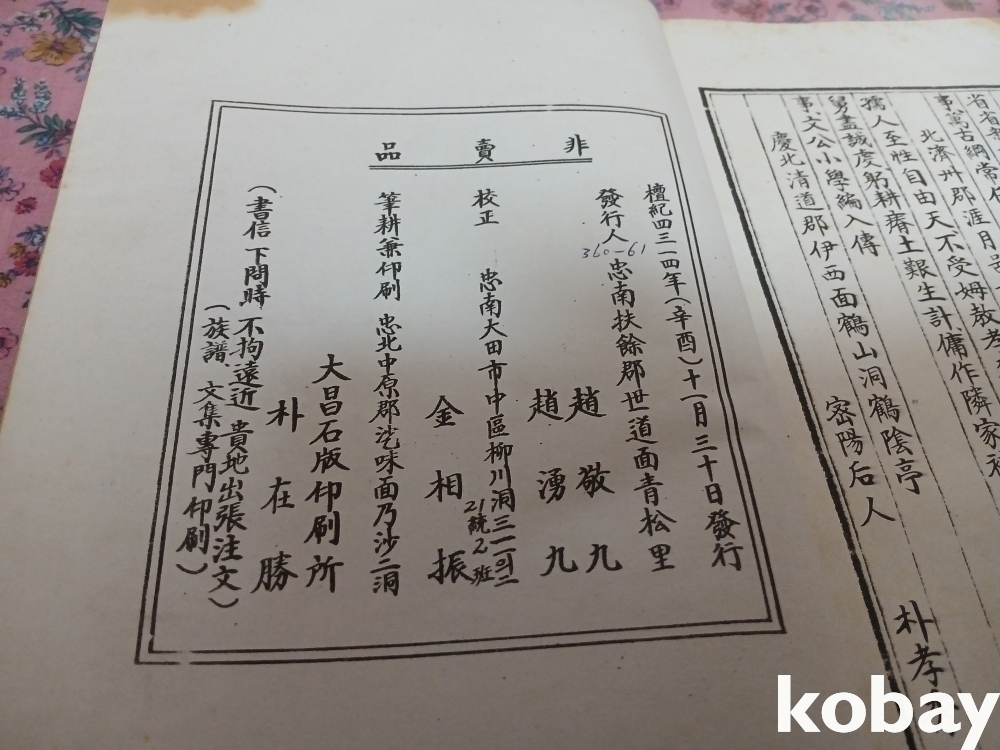 省省
事萬古綱常
北濟州郡涯月
孺人至性自由天不受姆敎孝
舅盡誠度躬耕瘠土艱生計傭作隣家
事文公小學編入傳
慶北清道郡伊西面鶴山洞鶴陰亭
密陽后人
朴孝
非賣品
檀紀四三一四年(辛酉)十一月三十日發行
發行人 忠南扶餘郡世道面青松里
360-61
趙敬九
趙湧九
校正 忠南大田市中區柳川洞三一一의二
21統2班
金相振
筆耕兼印刷 忠北中原郡乷味面乃沙二洞
大昌石版印刷所
朴在勝
(書信下問時 不拘遠近 貴地出張注文)
(族譜、文集專門印刷)
kobay